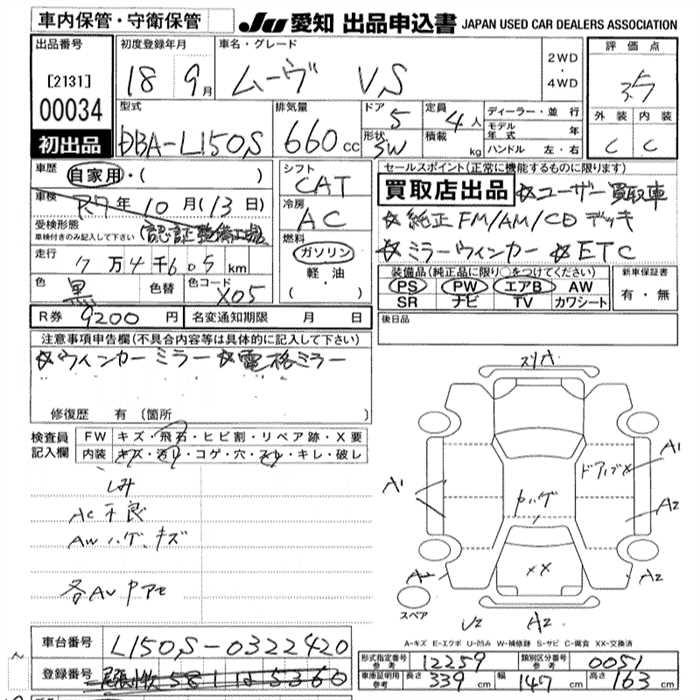 車内保管・守衛保管
JU 愛知 出品申込書 JAPAN USED CAR DEALERS ASSOCIATION
出品番号
[2131]
00034
初出品
初度登録年月
18 9月
車名・グレード
ムーヴ VS
2WD
・
4WD
評価点
3.5
外装 内装
C C
型式
DBA-L150S
排気量
660cc
ドア 5
形状 5W
定員 4人
積載 kg
ディーラー・並行
モデル年式 年
ハンドル 左・右
車歴
自家用・( )
車検 R7年10月(13日)
受検形態
車検付きのみ記入して下さい
(認証整備工場)
走行
7万4千605km
色 黒 色替 色コード X05
シフト
CAT
冷房
AC
燃料
ガソリン
軽油
( )
セールスポイント(正常に機能するものに限ります)
買取店出品 ☆ユーザー買取車
☆純正FM/AM/CDデッキ
☆ミラーウィンカー ☆ETC
装備品(純正品に限り○をつけてください)
PS PW エアB AW
SR ナビ TV カワシート
新車保証書
有・無
R券 9200円 名変通知期限 月 日
後日品
注意事項申告欄(不具合内容等は具体的に記入して下さい)
☆ウィンカーミラー ☆電格ミラー
修復歴 有(箇所
検査員
記入欄
FW キズ・飛石・ヒビ割・リペア跡・X要
内装 キズ・汚レ・コゲ・穴・スレ・キレ・破レ
しみ
AC不良
AWハゲ、キズ
スリキ
A1
A1
ドアノブX
A2
ハゲ
XX
A2
A2
U2 A2
スペア
A-キズ E-エクボ U-凹み W-補修跡 S-サビ C-腐食 XX-交換済
車台番号 L150S-0322420
登録番号
形式指定番号 参考 12259
類別区分番号 参考 0051
車庫証明用 参考 長さ 339cm 幅 147cm 高さ 163cm